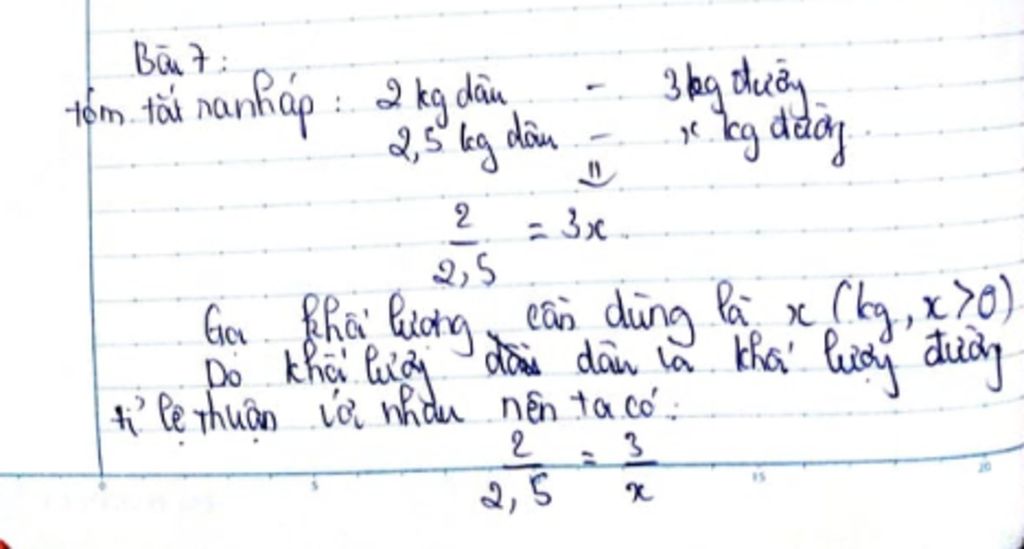 Bài 7:
tóm tắt ra nháp: 2 kg dâu - 3 kg đường
2,5 kg dâu - x kg đường
=
2/2,5 = 3x
Gọi khối lượng cần dùng là x (kg, x>0)
Do khối lượng dâu và khối lượng đường
tỉ lệ thuận với nhau nên ta có:
2/2,5 = 3/x
0 5 15 20